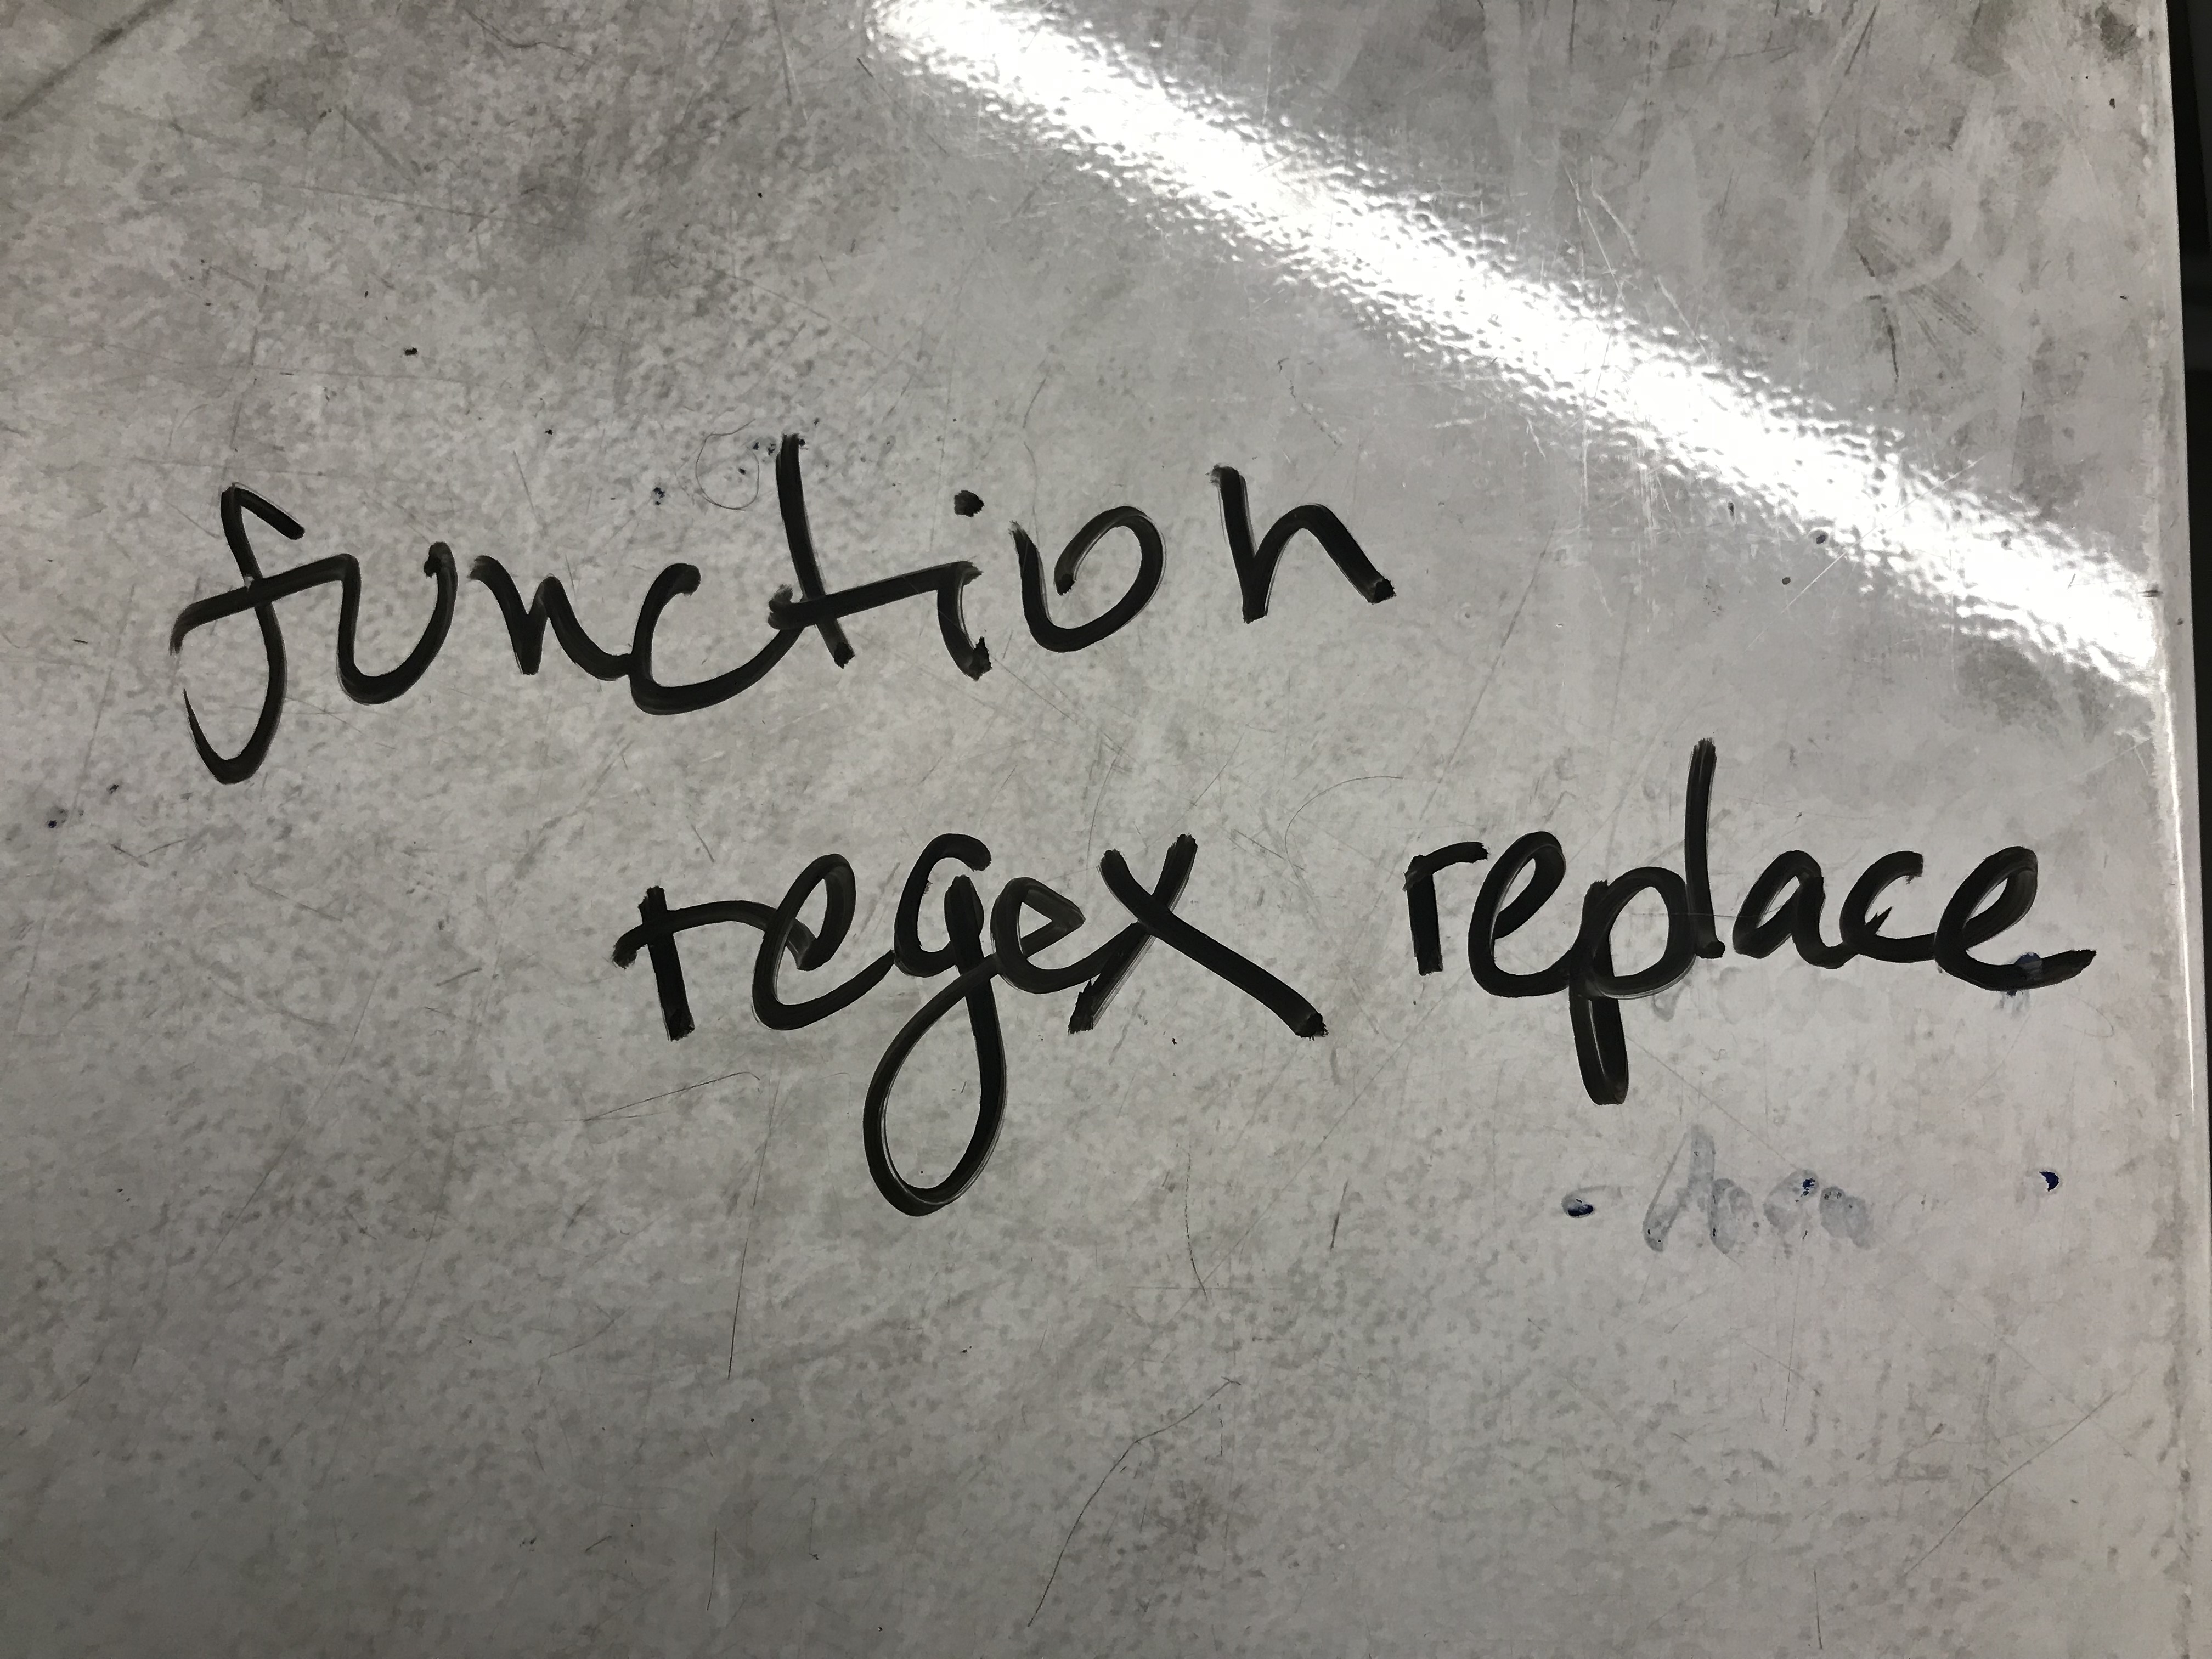 function
regex replace